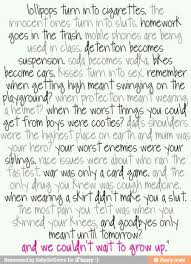 lollipops turn into cigarettes. the
innocent ones turn into sluts. homework
goes in the trash. mobile phones are being
used in class. detention becomes
suspension. soda becomes vodka. bikes
become cars. kisses turn into sex. remember
when getting high meant swinging on the
playground? when protection meant wearing
a helmet? when the worst things you could
get from boys were cooties? dad's shoulders
were the highest place on earth and mum was
your hero? your worst enemies were your
siblings. race issues were about who ran the
fastest. war was only a card game. and the
only drug you knew was cough medicine.
when wearing a skirt didn't make you a slut.
the most pain you felt was when you
skinned your knees. and goodbyes only
meant until tomorrow?
and we couldn't wait to grow up."